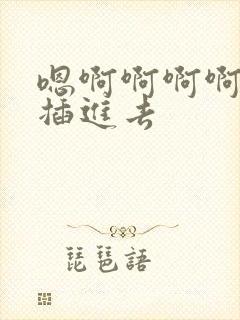 嗯啊啊啊啊
插進去
琵琶語